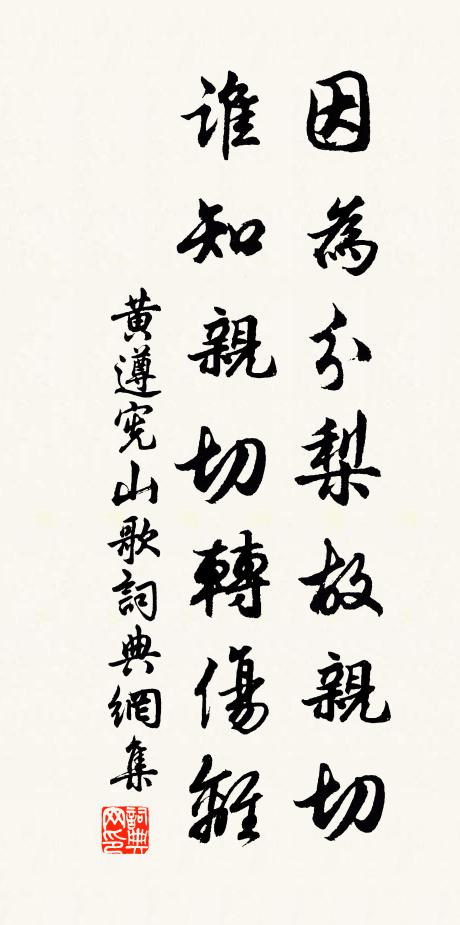 因為分梨故親切
誰知親切轉傷離
黃遵憲山歌詞典網集
詞典网印